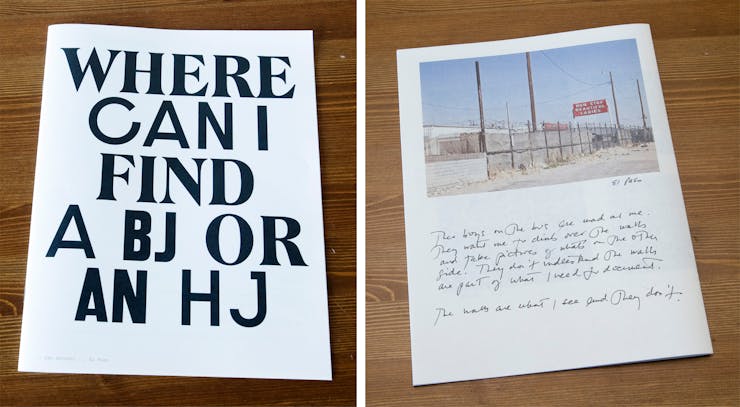 WHERE
CAN I
FIND
A BJ OR
AN HJ
NON STOP
BEAUTIFUL
LADIES
El Paso
The boys on the bus are mad at me.
They want me to climb over the walls
and take pictures of whats on the other
side. They don't understand the walls
are part of what I need to document.
The walls are what I see and they don't.